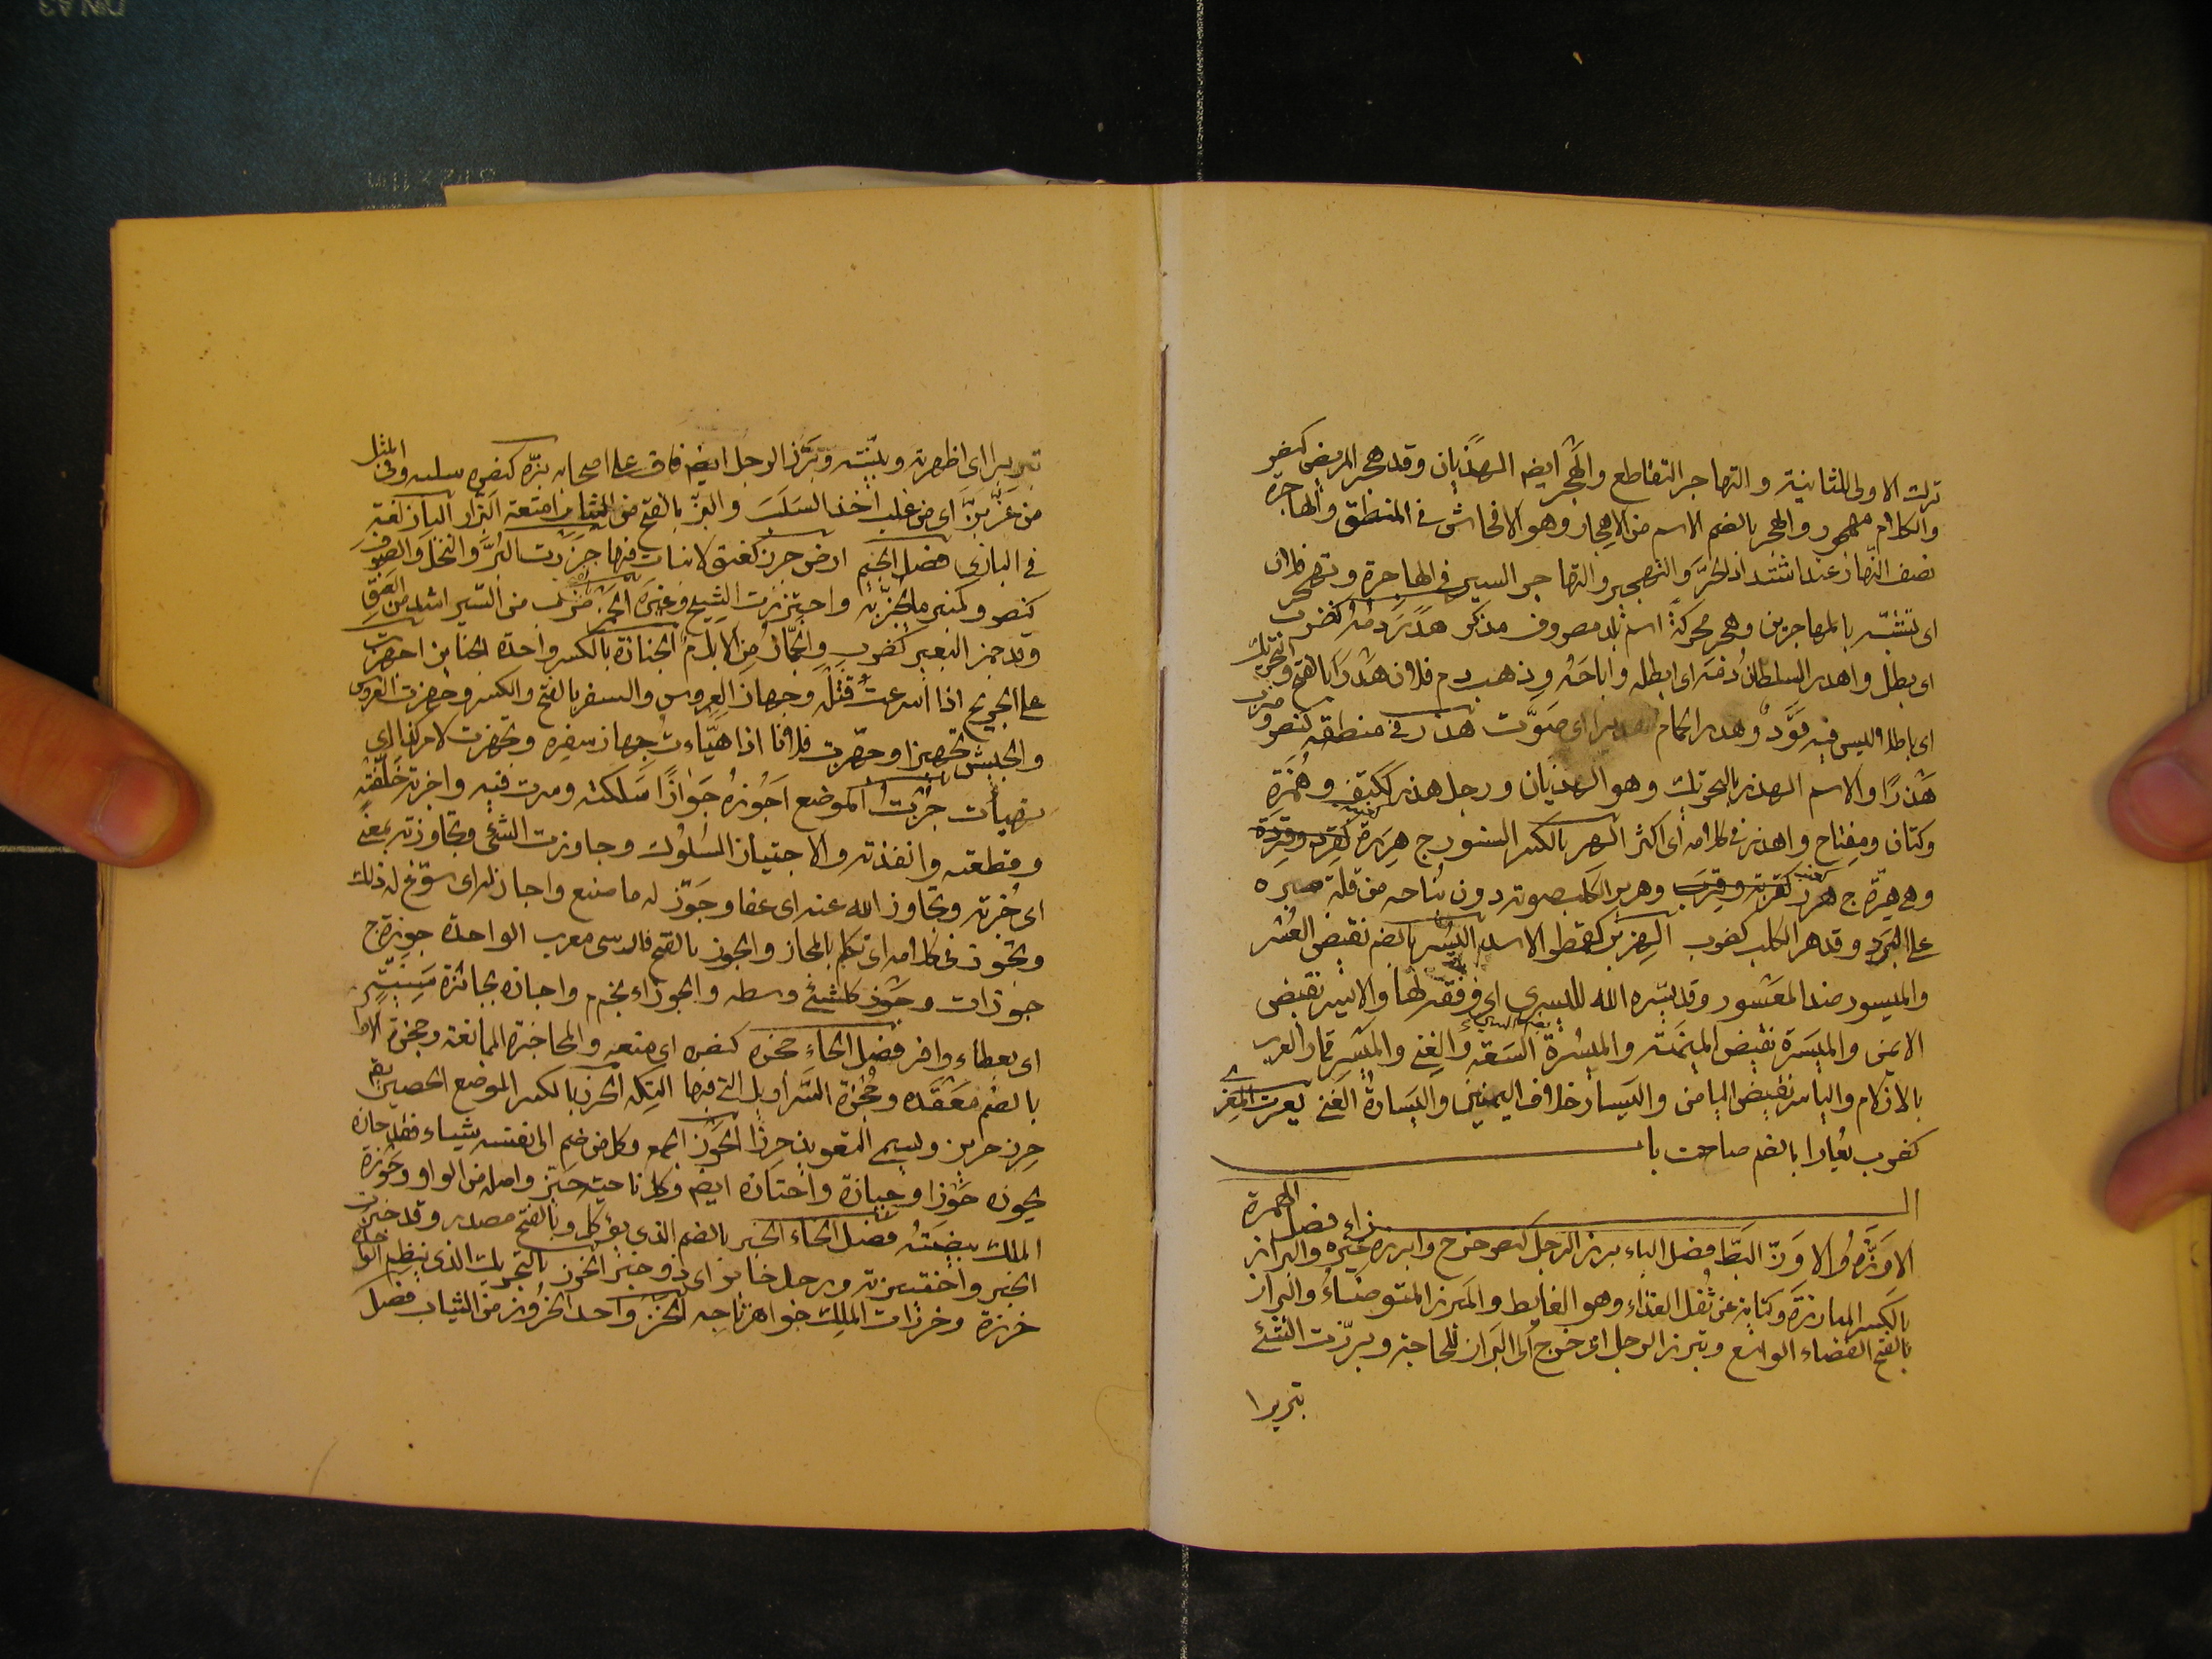 تركت الاولى للثانية والتهاجر التقاطع والهَجْر ايضه الهذيان وقد هجر المريض كنصر
والكلام مهجور والهجر بالضم الاسم من الاهجار وهو الافحاش فى المنطق والهاجرة
نصف النهار عند اشتداد الحرّ والتهجير والتهاجر السير فى الهاجرة وتهجر فلان
اى تشبّه بالمهاجرين وهجر محركةً اسم بلد مصروف مذكر هَدَرَ دمُهُ كضرب
اى بطل واهدر السلطانُ دَمَه اى ابطله واباحَهُ وذهب دم فلان هَدْرًا بالفتح والتحريك
اى باطلا ليس فيه قَوَدٌ وهدر الحمام هديرا اى صَوَّت هذر فى منطقه كنصر وضرب
هَذْرًا والاسم الهذر بالتحريك وهو الهذيان ورجل هذر ككَتِف وهُمَزَة
وكتان ومِفتاح واهذر فى كلامه اى اكثر الهر بالكسر السنور ج هِرَرة كقِرد وقِرَدة
وهى هِرّة ج هرر كقربة وقِرَب وهرير الكلب صوته دون نُباحه من قلة صبره
على البَرد وقد هر الكلب كضرب الهزبر كقمطر الاسد اليُسْر بالضم نقيض العُسْر
والميسور ضد المعسُور وقد يسّره الله لليسرى اى وفقه لها والايسر نقيض
الايمن والميسَرة نقيض الميمَنَة والميسُرة السَعَة والغِنى والميْسِر قمار العرب
بالازلام والياسر نقيض اليامن واليَسَار خلاف اليمين واليَسارةُ الغنى يعرت المعز
كضرب يُعارا بالضم صاحت باب
الزاء فصل الهمزة
الاوَزّة والاوَزّ البَطّ فصل الباء برز الرجل كنصر خرج وابرزه غيره والبراز
بالكسر المبارزة وكناية عن ثُفل الغذاء وهو الغايط والمَبرز المتوضّاءُ والبَراز
بالفتح الفضاء الواسع وتبرز الرجل اى خرج الى البَراز للحاجة وبرّزت الشئ
تبريزا
تبريزا اى اظهرته وبيّنته وبَرَّز الرجل ايضه فاق على اصحابه بزّه كنصره سلبه وفى المثل
من عَزَّ بَزَّ اى من غلب اخذ السَلَبَ والبزّ بالفتح من الثياب امتعة البَزّاز الباز لغة
فى البازى فصل الجيم ارض جرز كعنق لا نبات فيها جززت البُرَّ والنخل والصوف
كنصر وكمنبر ما يجزّ به واجتززت الشيح وغيره الجمز ضرب من السَّير اشد من العَنَق
وقد جمز البعير كضرب والجُمّازُ من الابل م الجنازة بالكسر واحدة الجنايز اجهزت
على الجريح اذا اسرعتُ قتلَهُ وجهاز العروس والسفر بالفتح والكسر وجهزت العروس
والجيش تجهيزا وجهّزت فلانا اذا هيّاءت جهاز سفره وتجهزت لامر كذا اى
تهيأت جُزتُ الموضع اَجُوزهُ جَوازًا سَلكته وسرت فيه واجزته خَلّفتُه
وقطعته وانفذته والاجتياز السُلُوك وجاوزت الشئ وتجاوزته بمعنى
اى جُزته وتجاوز الله عنه اى عفا وجَوّز له ما صنع واجاز له اى سَوّغ له ذلك
وتجوز فى كلامه اى تكلم بالمجاز والجوز بالفتح فارسى معرب الواحدة جوزة ج
جوزات وجَوْز كل شئ وسطه والجوزاء نجم م واجازه بجائزة سَنِيّة
اى بعطاء وافر فصل الحاء حجزه كنصره اى منعه والمحاجزة الممانعة وحجزة الازار
بالضم مَعْقَده وحُجْزة السَّراويل التى فيها التِكة الحرز بالكسر الموضع الحصين يقه
حِرز حريز ويسمى التعويذ حِرزًا الحَوْز الجمع وكل من ضم الى نفسه شياء فقد حازه
يحوزه حَوْزا وحِيازة واحتازه ايضه وكل ناحية حَيّز واصله من الواو وحَوْزة
الملك بيضَتُه فصل الخاء الخبز بالضم الذى يؤكل وبالفتح مصدر وقد خبزت
الخبز واختبزته ورجل خابز اى ذو خبز الخرز بالتحريك الذى ينظم الواحدة
خرزة وخرزات الملك جواهر تاجه الخزّ واحد الخزُوز من الثياب فصل